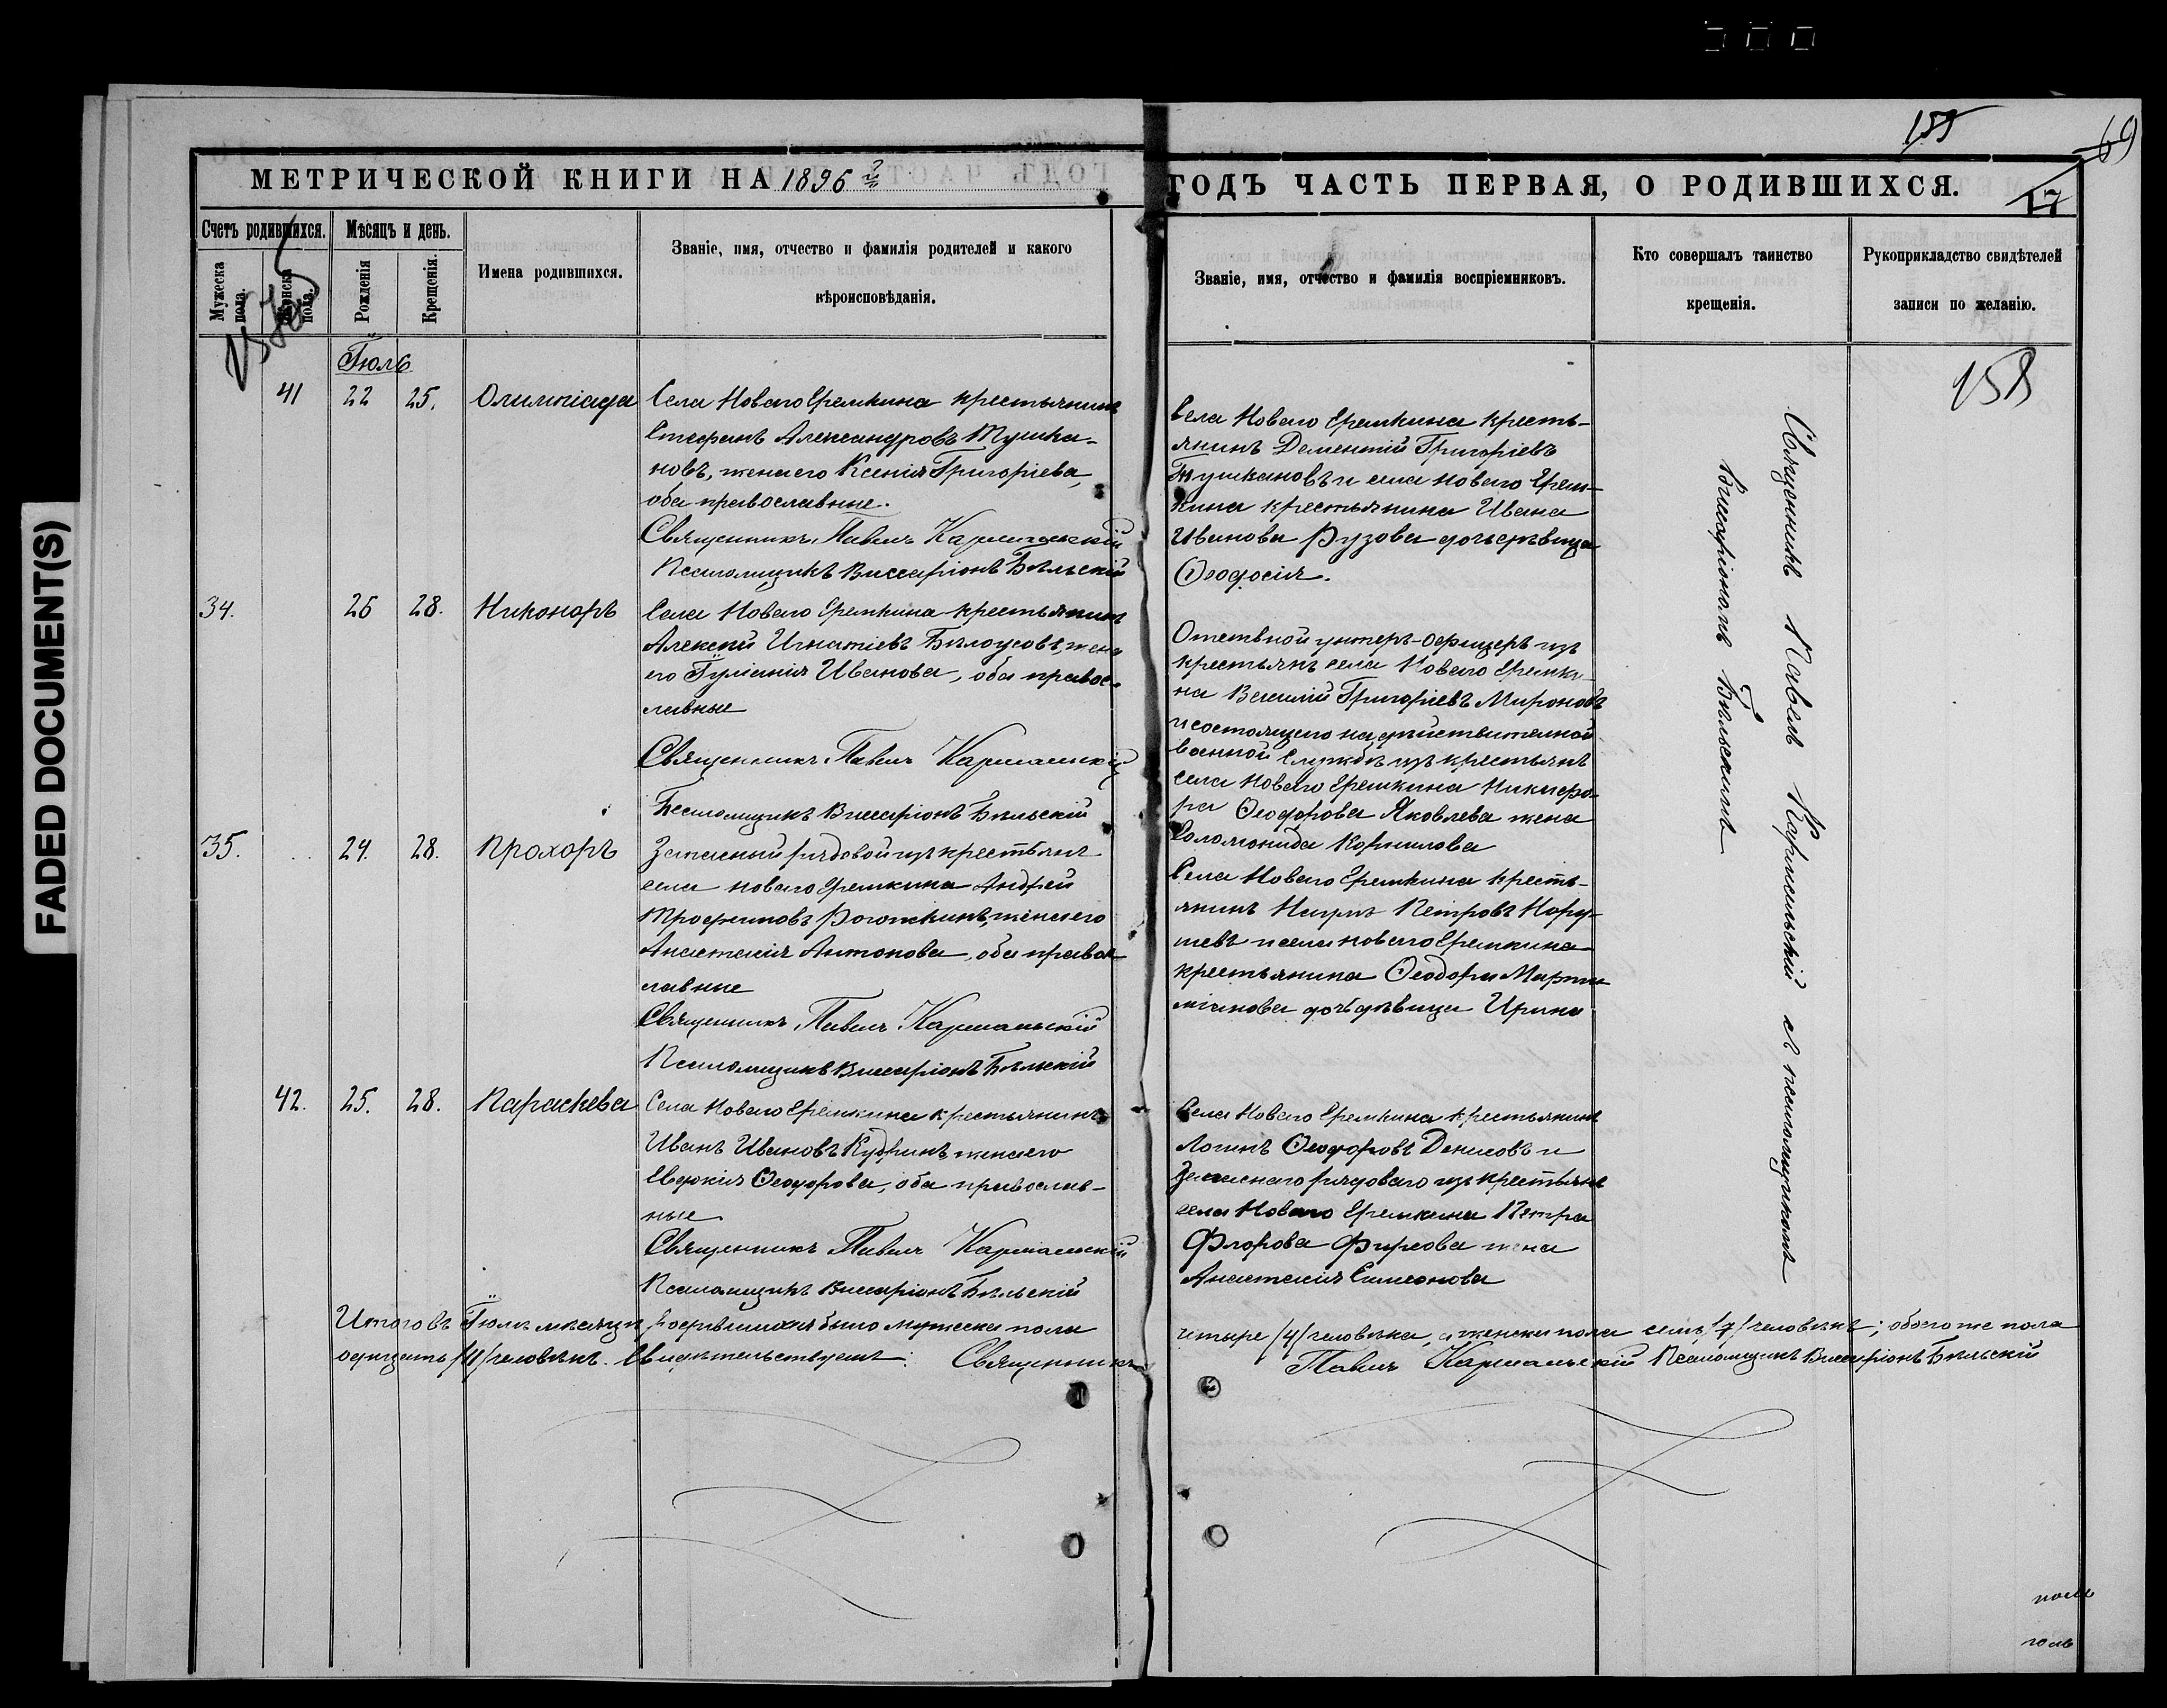 FADED DOCUMENT(S)
155
69
МЕТРИЧЕСКОЙ КНИГИ НА 1896 й
ГОДЪ ЧАСТЬ ПЕРВАЯ, О РОДИВШИХСЯ.
17
Счетъ родившихся.
Мужеска пола.
Женска пола.
Мѣсяцъ и день.
Рожденія
Крещенія.
Имена родившихся.
Званіе, имя, отчество и фамилія родителей и какого
вѣроисповѣданія.
Званіе, имя, отчество и фамилія воспріемниковъ.
Кто совершалъ таинство
крещенія.
Рукоприкладство свидѣтелей
записи по желанію.
158
Іюль
41 22 25. Олимпіада
Села Новаго Еремкина крестьянинъ
Стефанъ Александровъ Тушка-
новъ, жена его Ксенія Григоріева,
оба православные.
Священникъ Павелъ Кармальскій
Псаломщикъ Виссаріонъ Бѣльскій
Села Новаго Еремкина кресть-
янинъ Дементій Григоріевъ
Тушкановъ и села Новаго Ерем-
кина крестьянина Ивана
Иванова Рузова дочь дѣвица
Ѳеодосія.
34. 26 28. Никоноръ
Села Новаго Еремкина крестьянинъ
Алексій Игнатіевъ Бѣлоусовъ, жена
его Іуліанія Иванова, оба правос-
лавные
Священникъ Павелъ Кармальскій
Псаломщикъ Виссаріонъ Бѣльскій
Отставной унтеръ-офицеръ изъ
крестьянъ села Новаго Еремки-
на Василій Григоріевъ Мироновъ
и состоящаго на дѣйствительной
военной службѣ изъ крестьянъ
села Новаго Еремкина Никифо-
ра Ѳеодорова Яковлева жена
Соломонида Корнилова
35. 24. 28. Прохоръ
Запасный рядовой изъ крестьянъ
села Новаго Еремкина Андрей
Трофимовъ Рогожкинъ, жена его
Анастасія Антонова, оба правос-
лавные
Священникъ Павелъ Кармальскій
Псаломщикъ Виссаріонъ Бѣльскій
Села Новаго Еремкина кресть-
янинъ Наумъ Петровъ
и села Новаго Еремкина
крестьянина Ѳеодора
дочь дѣвица Ирина
42. 25. 28. Параскева
Села Новаго Еремкина крестьянинъ
Иванъ Ивановъ Кудринъ, жена его
Евдокія Ѳеодорова, оба православ-
ные
Священникъ Павелъ Кармальскій
Псаломщикъ Виссаріонъ Бѣльскій
Села Новаго Еремкина крестьянинъ
Логинъ Ѳеодоровъ Денисовъ и
Запаснаго рядоваго изъ крестьянъ
села Новаго Еремкина Петра
Флорова Фирсова жена
Анастасія Симеонова
Священникъ Павелъ Кармальскій съ псаломщикомъ
Виссаріономъ Бѣльскимъ
Итого въ Іюлѣ мѣсяцѣ родившихся было мужеска пола четыре /4/ человѣка, а женска пола семь /7/ человѣкъ; обоего же пола
одинадцать /11/ человѣкъ. Свидѣтельствуемъ: Священникъ Павелъ Кармальскій Псаломщикъ Виссаріонъ Бѣльскій